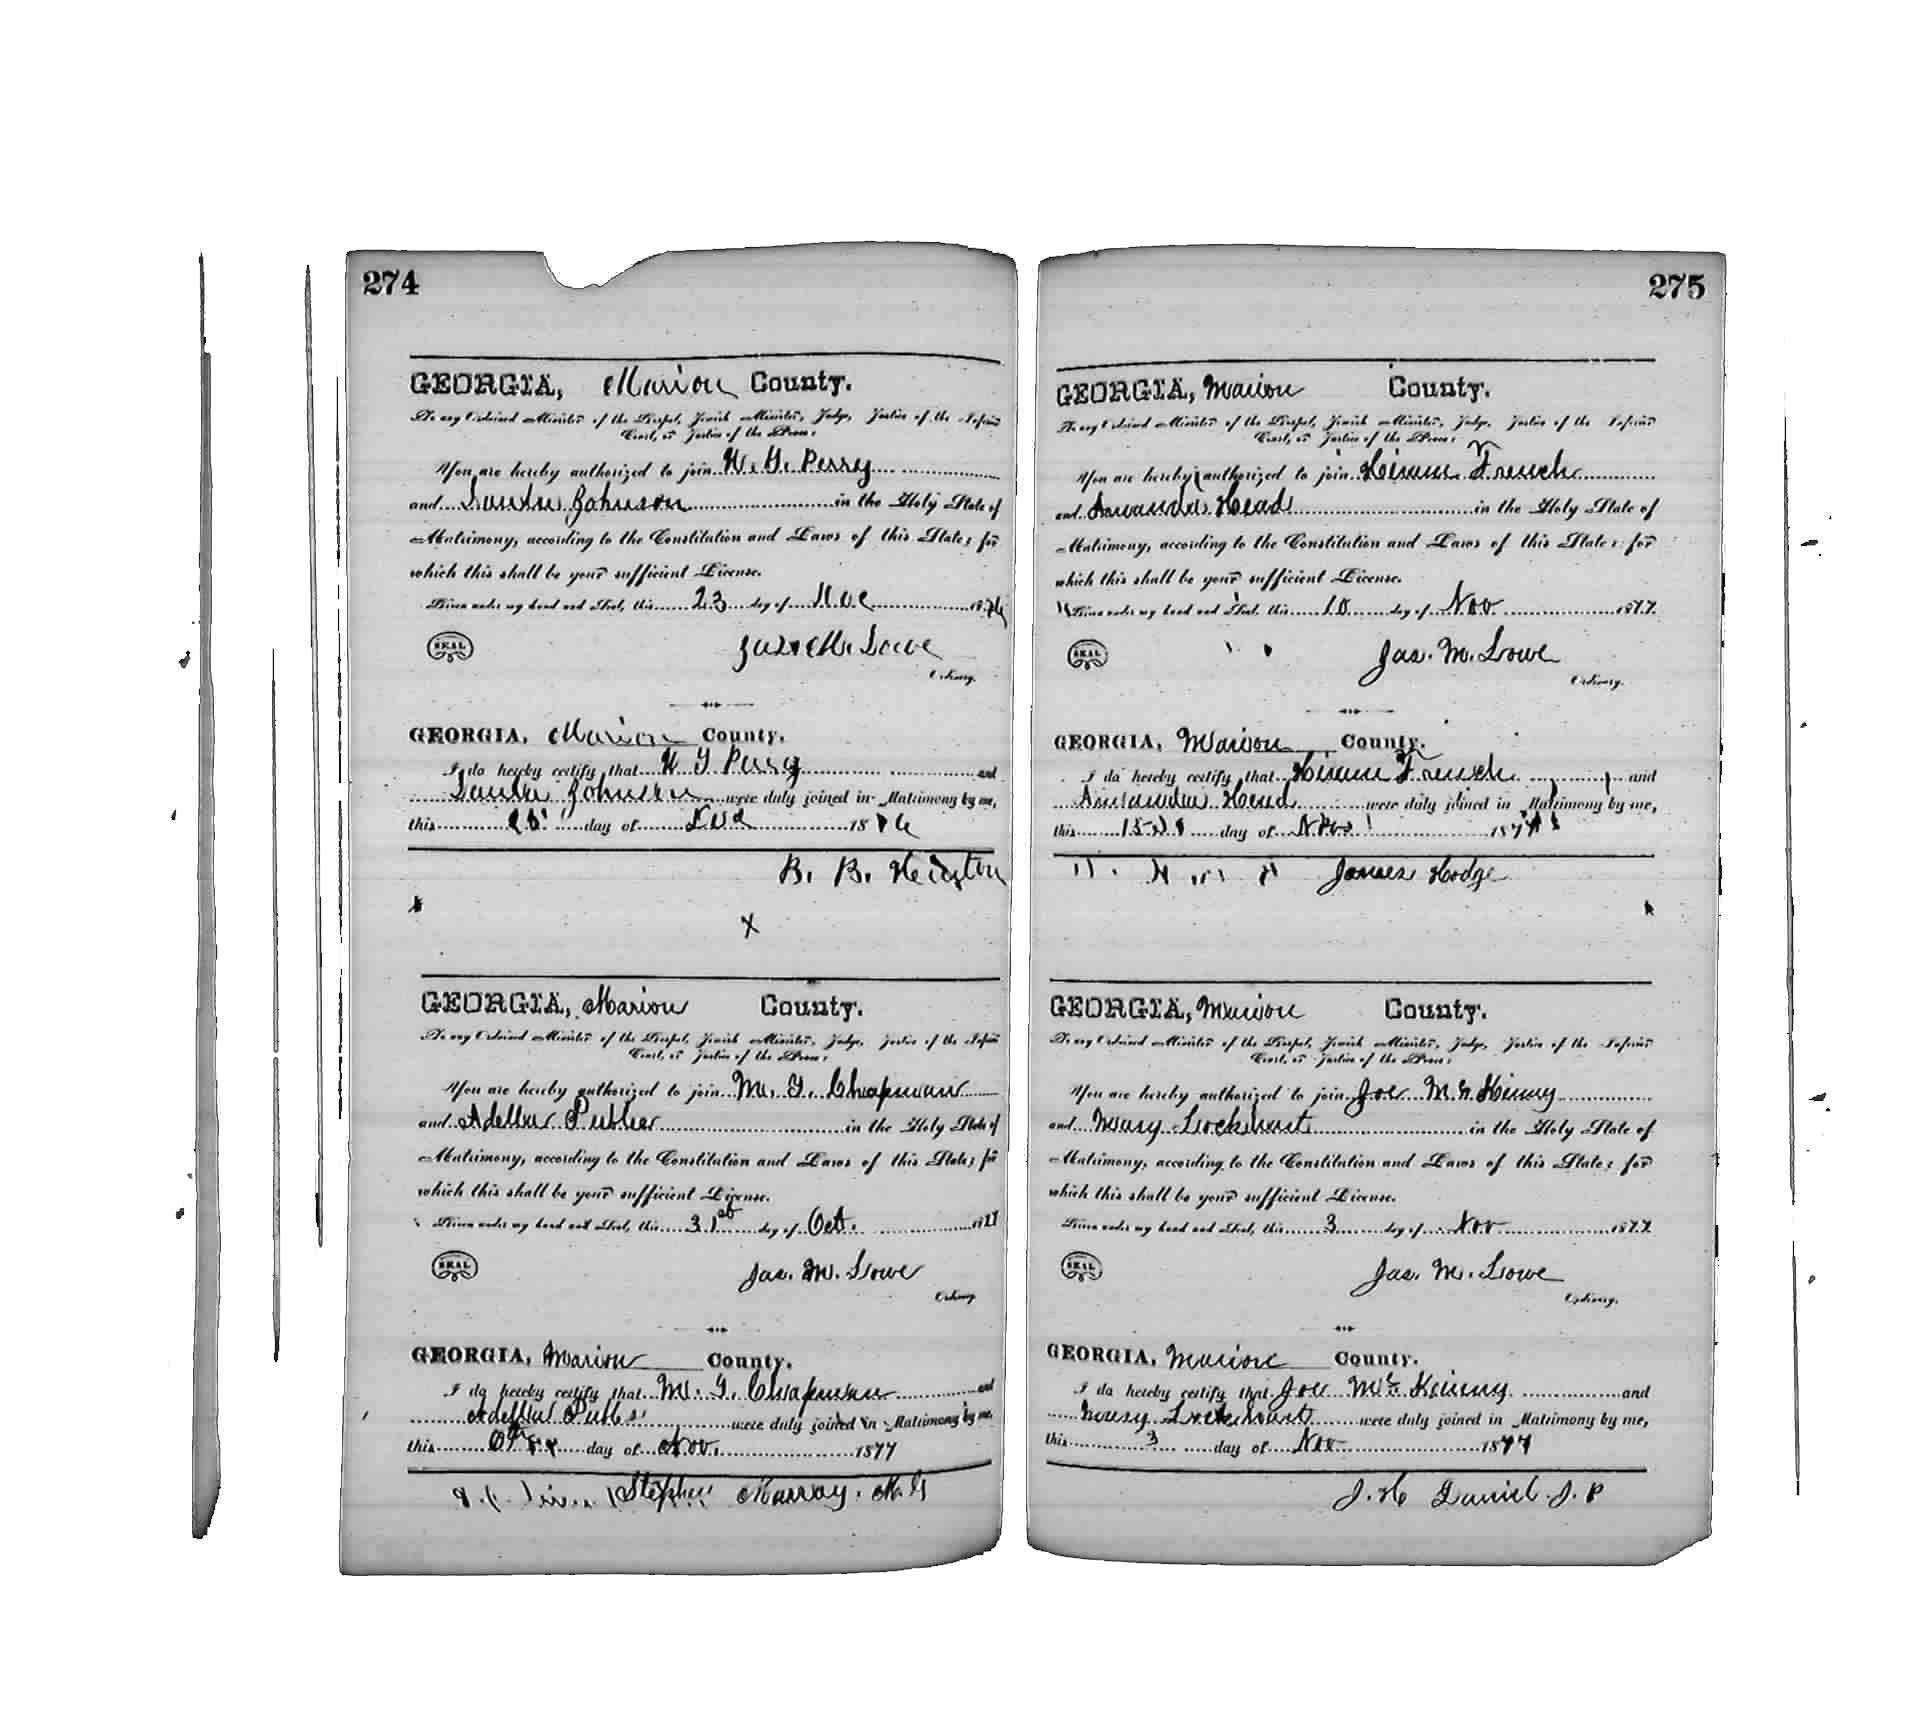 274
GEORGIA, Marion County.
To any Ordained Minister of the Gospel, Jewish Minister, Judge, Justice of the Inferior
Court, or Justice of the Peace:
You are hereby authorized to join W. G. Perry
and Johnson in the Holy State of
Matrimony, according to the Constitution and Laws of this State; for
which this shall be your sufficient License.
Given under my hand and Seal, this 23 day of 18
SEAL
Jas. M. Lowe
Ordinary.
GEORGIA, Marion County.
I do hereby certify that W G Perry and
Johnson were duly joined in Matrimony by me,
this day of 18
B. B.
X
GEORGIA, Marion County.
To any Ordained Minister of the Gospel, Jewish Minister, Judge, Justice of the Inferior
Court, or Justice of the Peace:
You are hereby authorized to join M. G. Chapman
and Adella in the Holy State of
Matrimony, according to the Constitution and Laws of this State; for
which this shall be your sufficient License.
Given under my hand and Seal, this 31st day of Oct. 1877
SEAL
Jas. M. Lowe
Ordinary.
GEORGIA, Marion County.
I do hereby certify that M. G. Chapman and
Adella were duly joined in Matrimony by me,
this day of Nov. 1877
Stephen Murray. M. G
275
GEORGIA, Marion County.
To any Ordained Minister of the Gospel, Jewish Minister, Judge, Justice of the Inferior
Court, or Justice of the Peace:
You are hereby authorized to join Hiram French
and Amanda Head in the Holy State of
Matrimony, according to the Constitution and Laws of this State; for
which this shall be your sufficient License.
Given under my hand and Seal, this 10 day of Nov 1877
SEAL
Jas. M. Lowe
Ordinary.
GEORGIA, Marion County.
I do hereby certify that Hiram French and
Amanda Head were duly joined in Matrimony by me,
this day of Nov 1877
James Hodge
GEORGIA, Marion County.
To any Ordained Minister of the Gospel, Jewish Minister, Judge, Justice of the Inferior
Court, or Justice of the Peace:
You are hereby authorized to join Joe McKinny
and Mary Lockhart in the Holy State of
Matrimony, according to the Constitution and Laws of this State; for
which this shall be your sufficient License.
Given under my hand and Seal, this 3 day of Nov 1877
SEAL
Jas. M. Lowe
Ordinary.
GEORGIA, Marion County.
I do hereby certify that Joe McKinny and
Mary Lockhart were duly joined in Matrimony by me,
this 3 day of Nov 1877
J. H Daniel. J. P